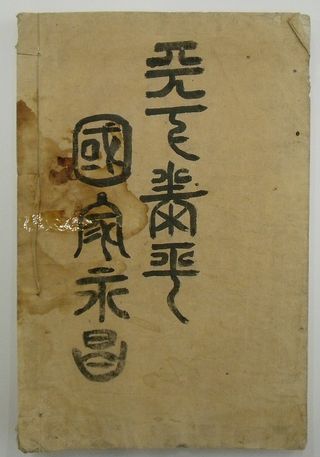 天下泰平
國家永昌